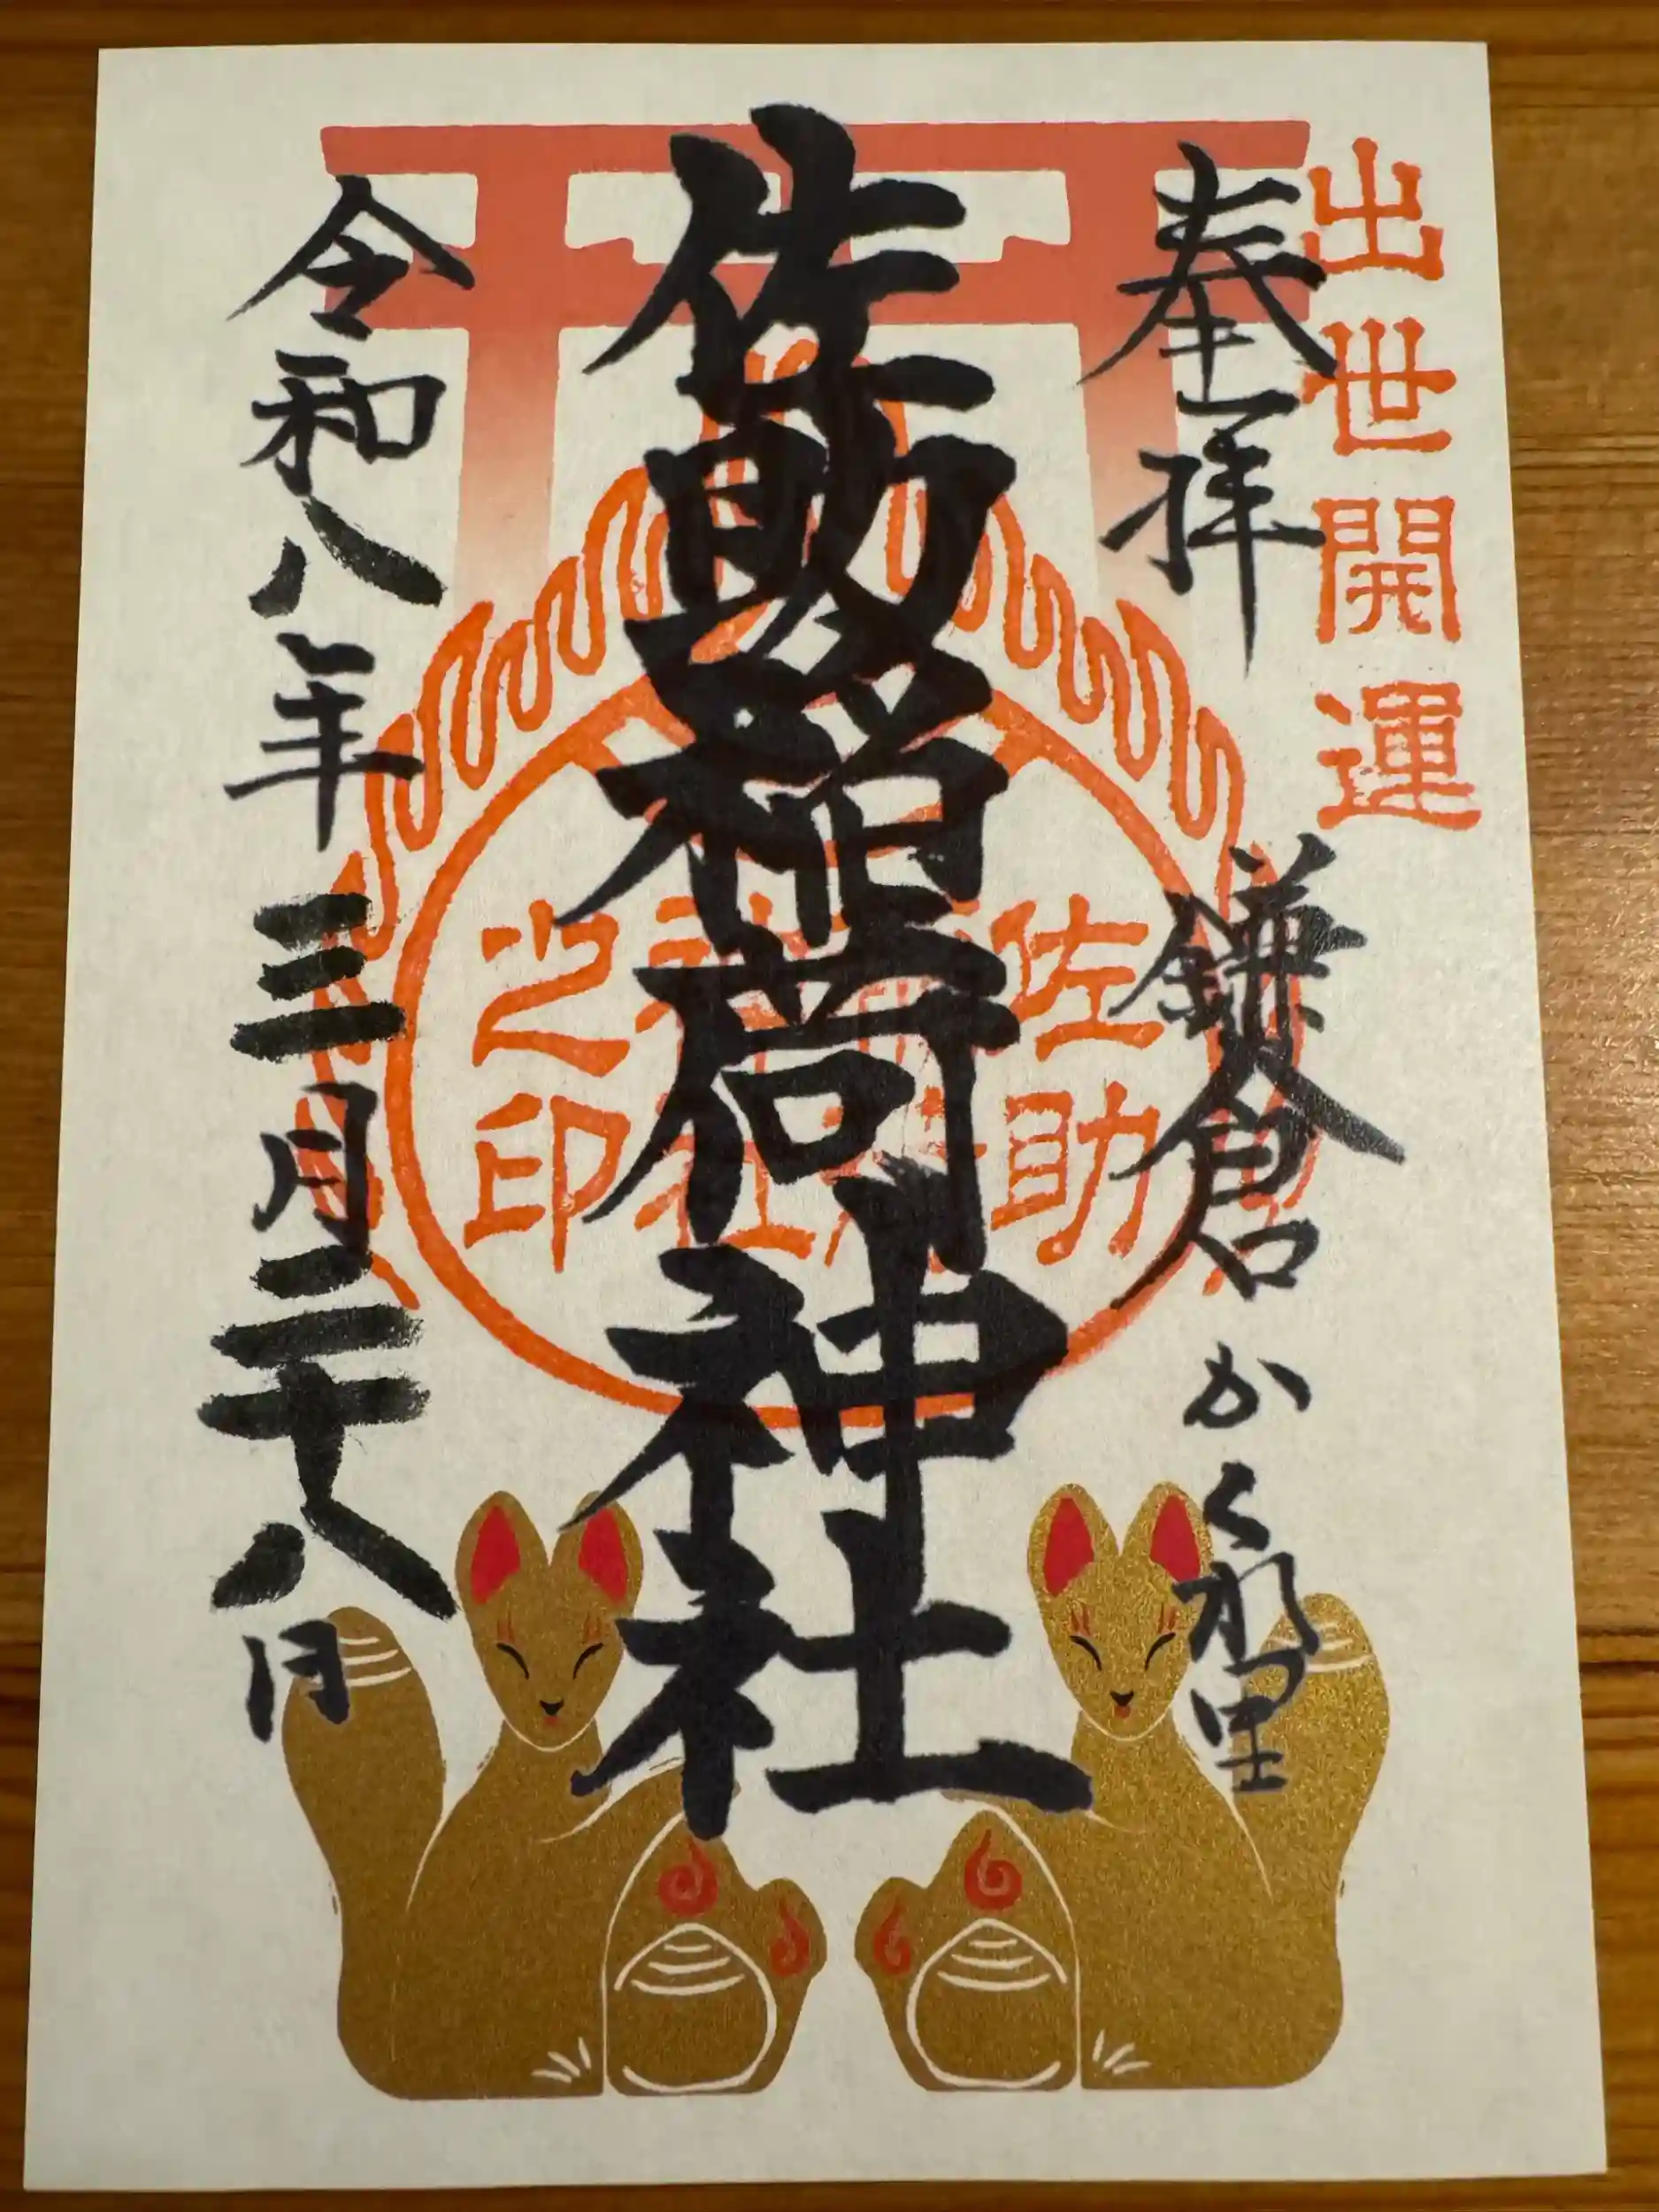 出世開運
奉拝
鎌倉かくれ里
佐助稲荷神社
佐助
神社
之印
令和八年三月二十八日